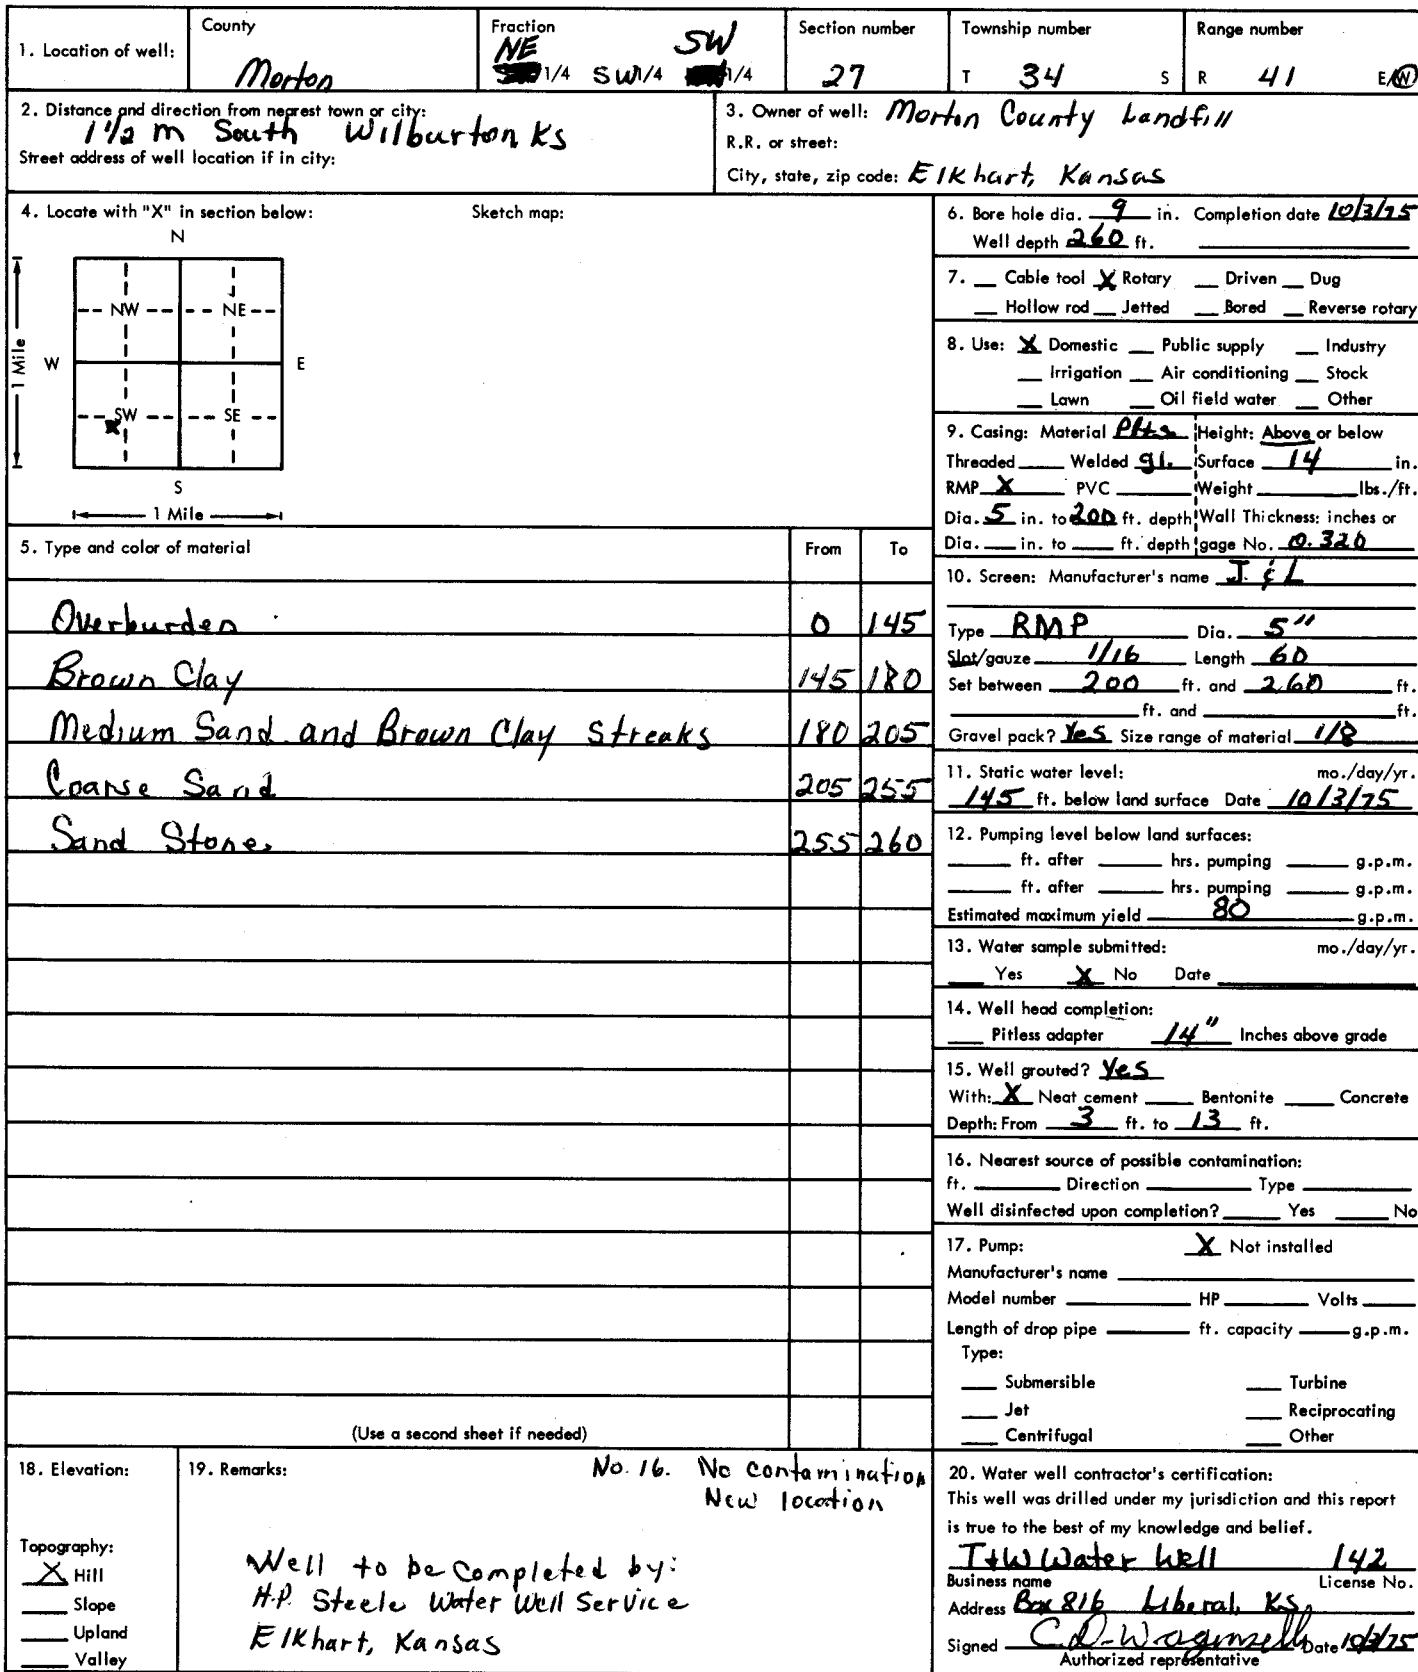 1. Location of well:
County
Morton
Fraction
NE SW
1/4 SW1/4 1/4
Section number
27
Township number
T 34 S
Range number
R 41 E/W
2. Distance and direction from nearest town or city:
1 1/2 m South Wilburton Ks
Street address of well location if in city:
3. Owner of well: Morton County Landfill
R.R. or street:
City, state, zip code: Elkhart, Kansas
4. Locate with "X" in section below:
Sketch map:
N
NW NE
W E
1 Mile
SW SE
X
S
1 Mile
5. Type and color of material From To
Overburden 0 145
Brown Clay 145 180
Medium Sand and Brown Clay Streaks 180 205
Coarse Sand 205 255
Sand Stone 255 260
(Use a second sheet if needed)
6. Bore hole dia. 9 in. Completion date 10/3/75
Well depth 260 ft.
7. Cable tool X Rotary Driven Dug
Hollow rod Jetted Bored Reverse rotary
8. Use: X Domestic Public supply Industry
Irrigation Air conditioning Stock
Lawn Oil field water Other
9. Casing: Material Height: Above or below
Threaded Welded gl. Surface 14 in.
RMP X PVC Weight lbs./ft.
Dia. 5 in. to 200 ft. depth Wall Thickness: inches or
Dia. in. to ft. depth gage No. 0.320
10. Screen: Manufacturer's name J & L
Type RMP Dia. 5"
Slot/gauze 1/16 Length 60
Set between 200 ft. and 260 ft.
ft. and ft.
Gravel pack? Yes Size range of material 1/8
11. Static water level: mo./day/yr.
145 ft. below land surface Date 10/3/75
12. Pumping level below land surfaces:
ft. after hrs. pumping g.p.m.
ft. after hrs. pumping g.p.m.
Estimated maximum yield 80 g.p.m.
13. Water sample submitted: mo./day/yr.
Yes X No Date
14. Well head completion:
Pitless adapter 14" Inches above grade
15. Well grouted? Yes
With: X Neat cement Bentonite Concrete
Depth: From 3 ft. to 13 ft.
16. Nearest source of possible contamination:
ft. Direction Type
Well disinfected upon completion? Yes No
17. Pump: X Not installed
Manufacturer's name
Model number HP Volts
Length of drop pipe ft. capacity g.p.m.
Type:
Submersible Turbine
Jet Reciprocating
Centrifugal Other
18. Elevation:
Topography:
X Hill
Slope
Upland
Valley
19. Remarks: No. 16. No contamination
New location
Well to be completed by:
H.P. Steele Water Well Service
Elkhart, Kansas
20. Water well contractor's certification:
This well was drilled under my jurisdiction and this report
is true to the best of my knowledge and belief.
T+W Water Well 142
Business name License No.
Address Box 816 Liberal, KS,
Signed Date 10/3/75
Authorized representative